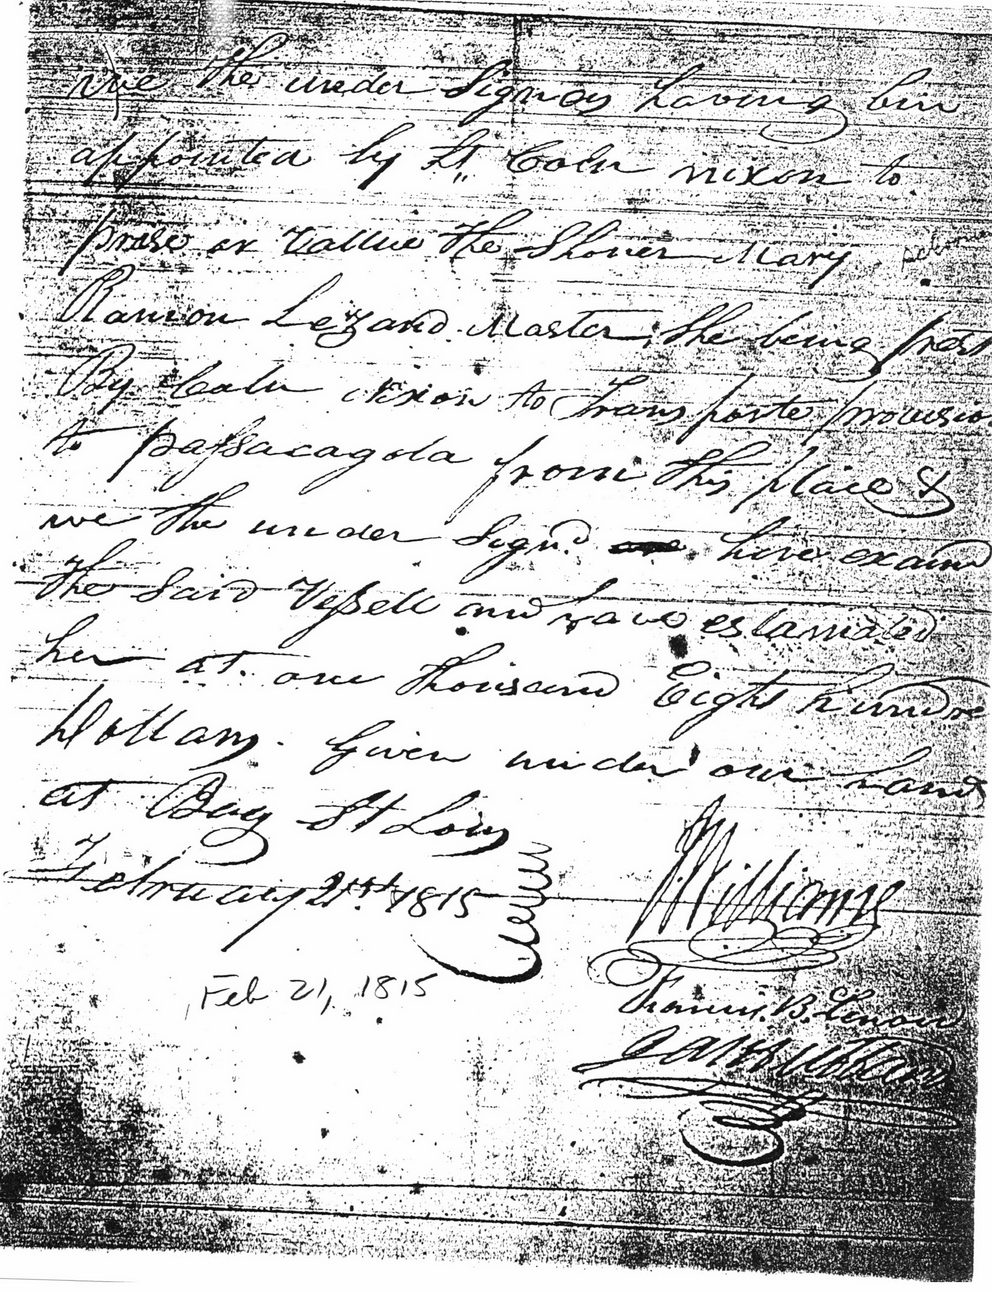 we the under Signes having bin
appointed by Lt. Coln nixon to
prase or vallue the Shoner Mary
Ramon Lezard Master, She being prest
By Coln Nixon to transporte provision
to passacagola from this place &
we the under Signd. have examd
the Said Vessell and have estamated
her at one thousand Eight hundre
Dollars. Given under our hands
at Bay St Louis
February 21st. 1815
Williams
Feb 21, 1815
Thomas. B.